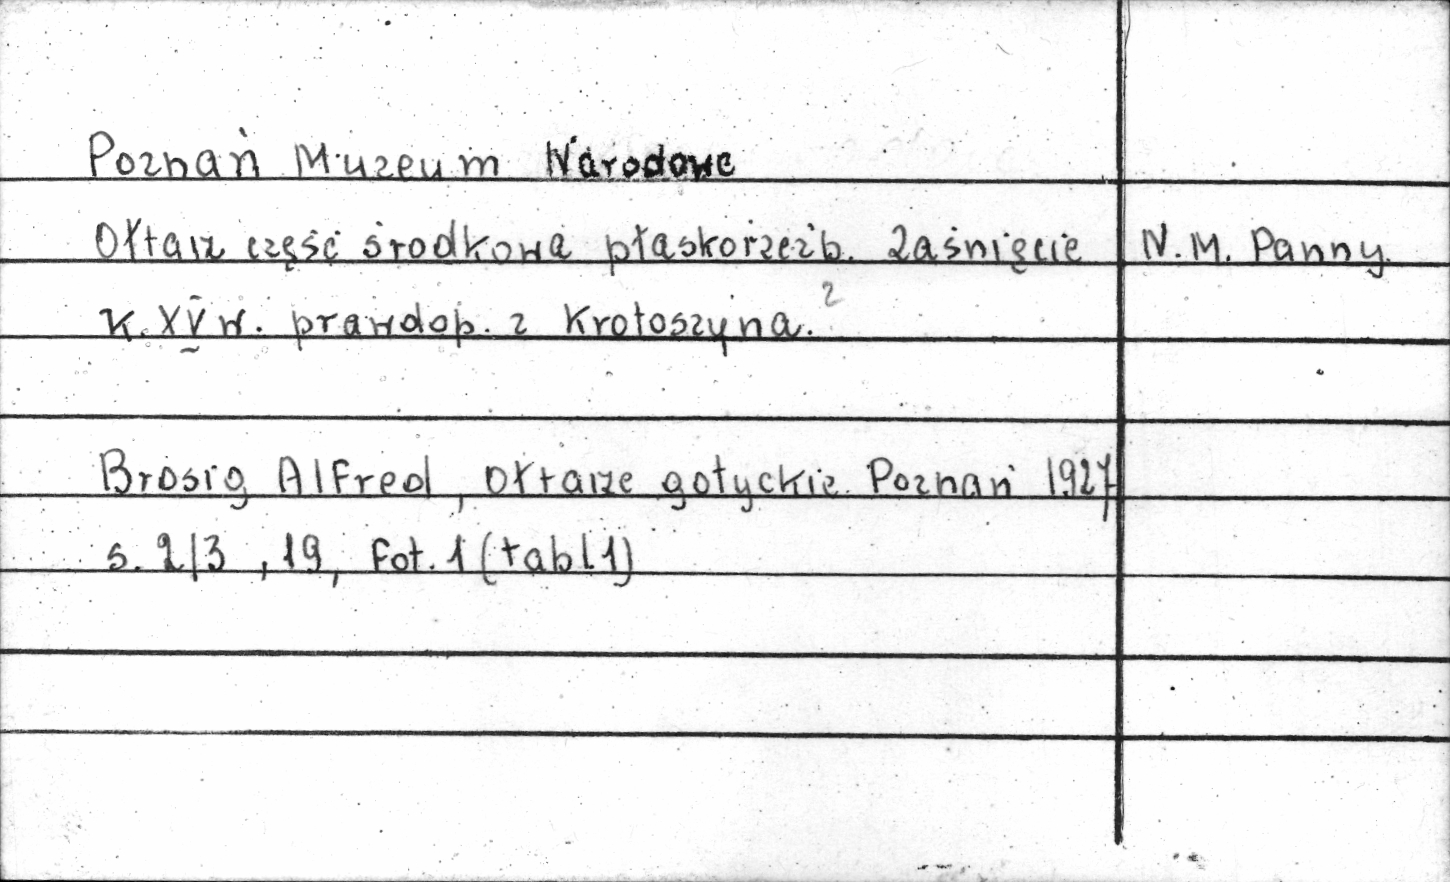 Poznań Muzeum Narodowe
Ołtarz część środkowa płaskorzeźb. Zaśnięcie N. M. Panny.
K. XV w. prawdop. z Krotoszyna. ?
Brosig Alfred, Ołtarze gotyckie. Poznań 1927
s. 2/3, 19, Fot. 1 (tabl.1)